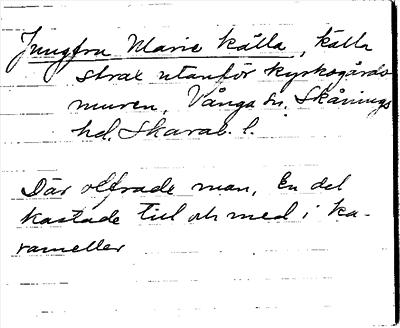 Jungfru Marie källa, källa
strax utanför kyrkogårds
muren, Vånga sn. Skånings
hd. Skarab. l.
Där offrade man. En del
kastade till och med i ka-
rameller